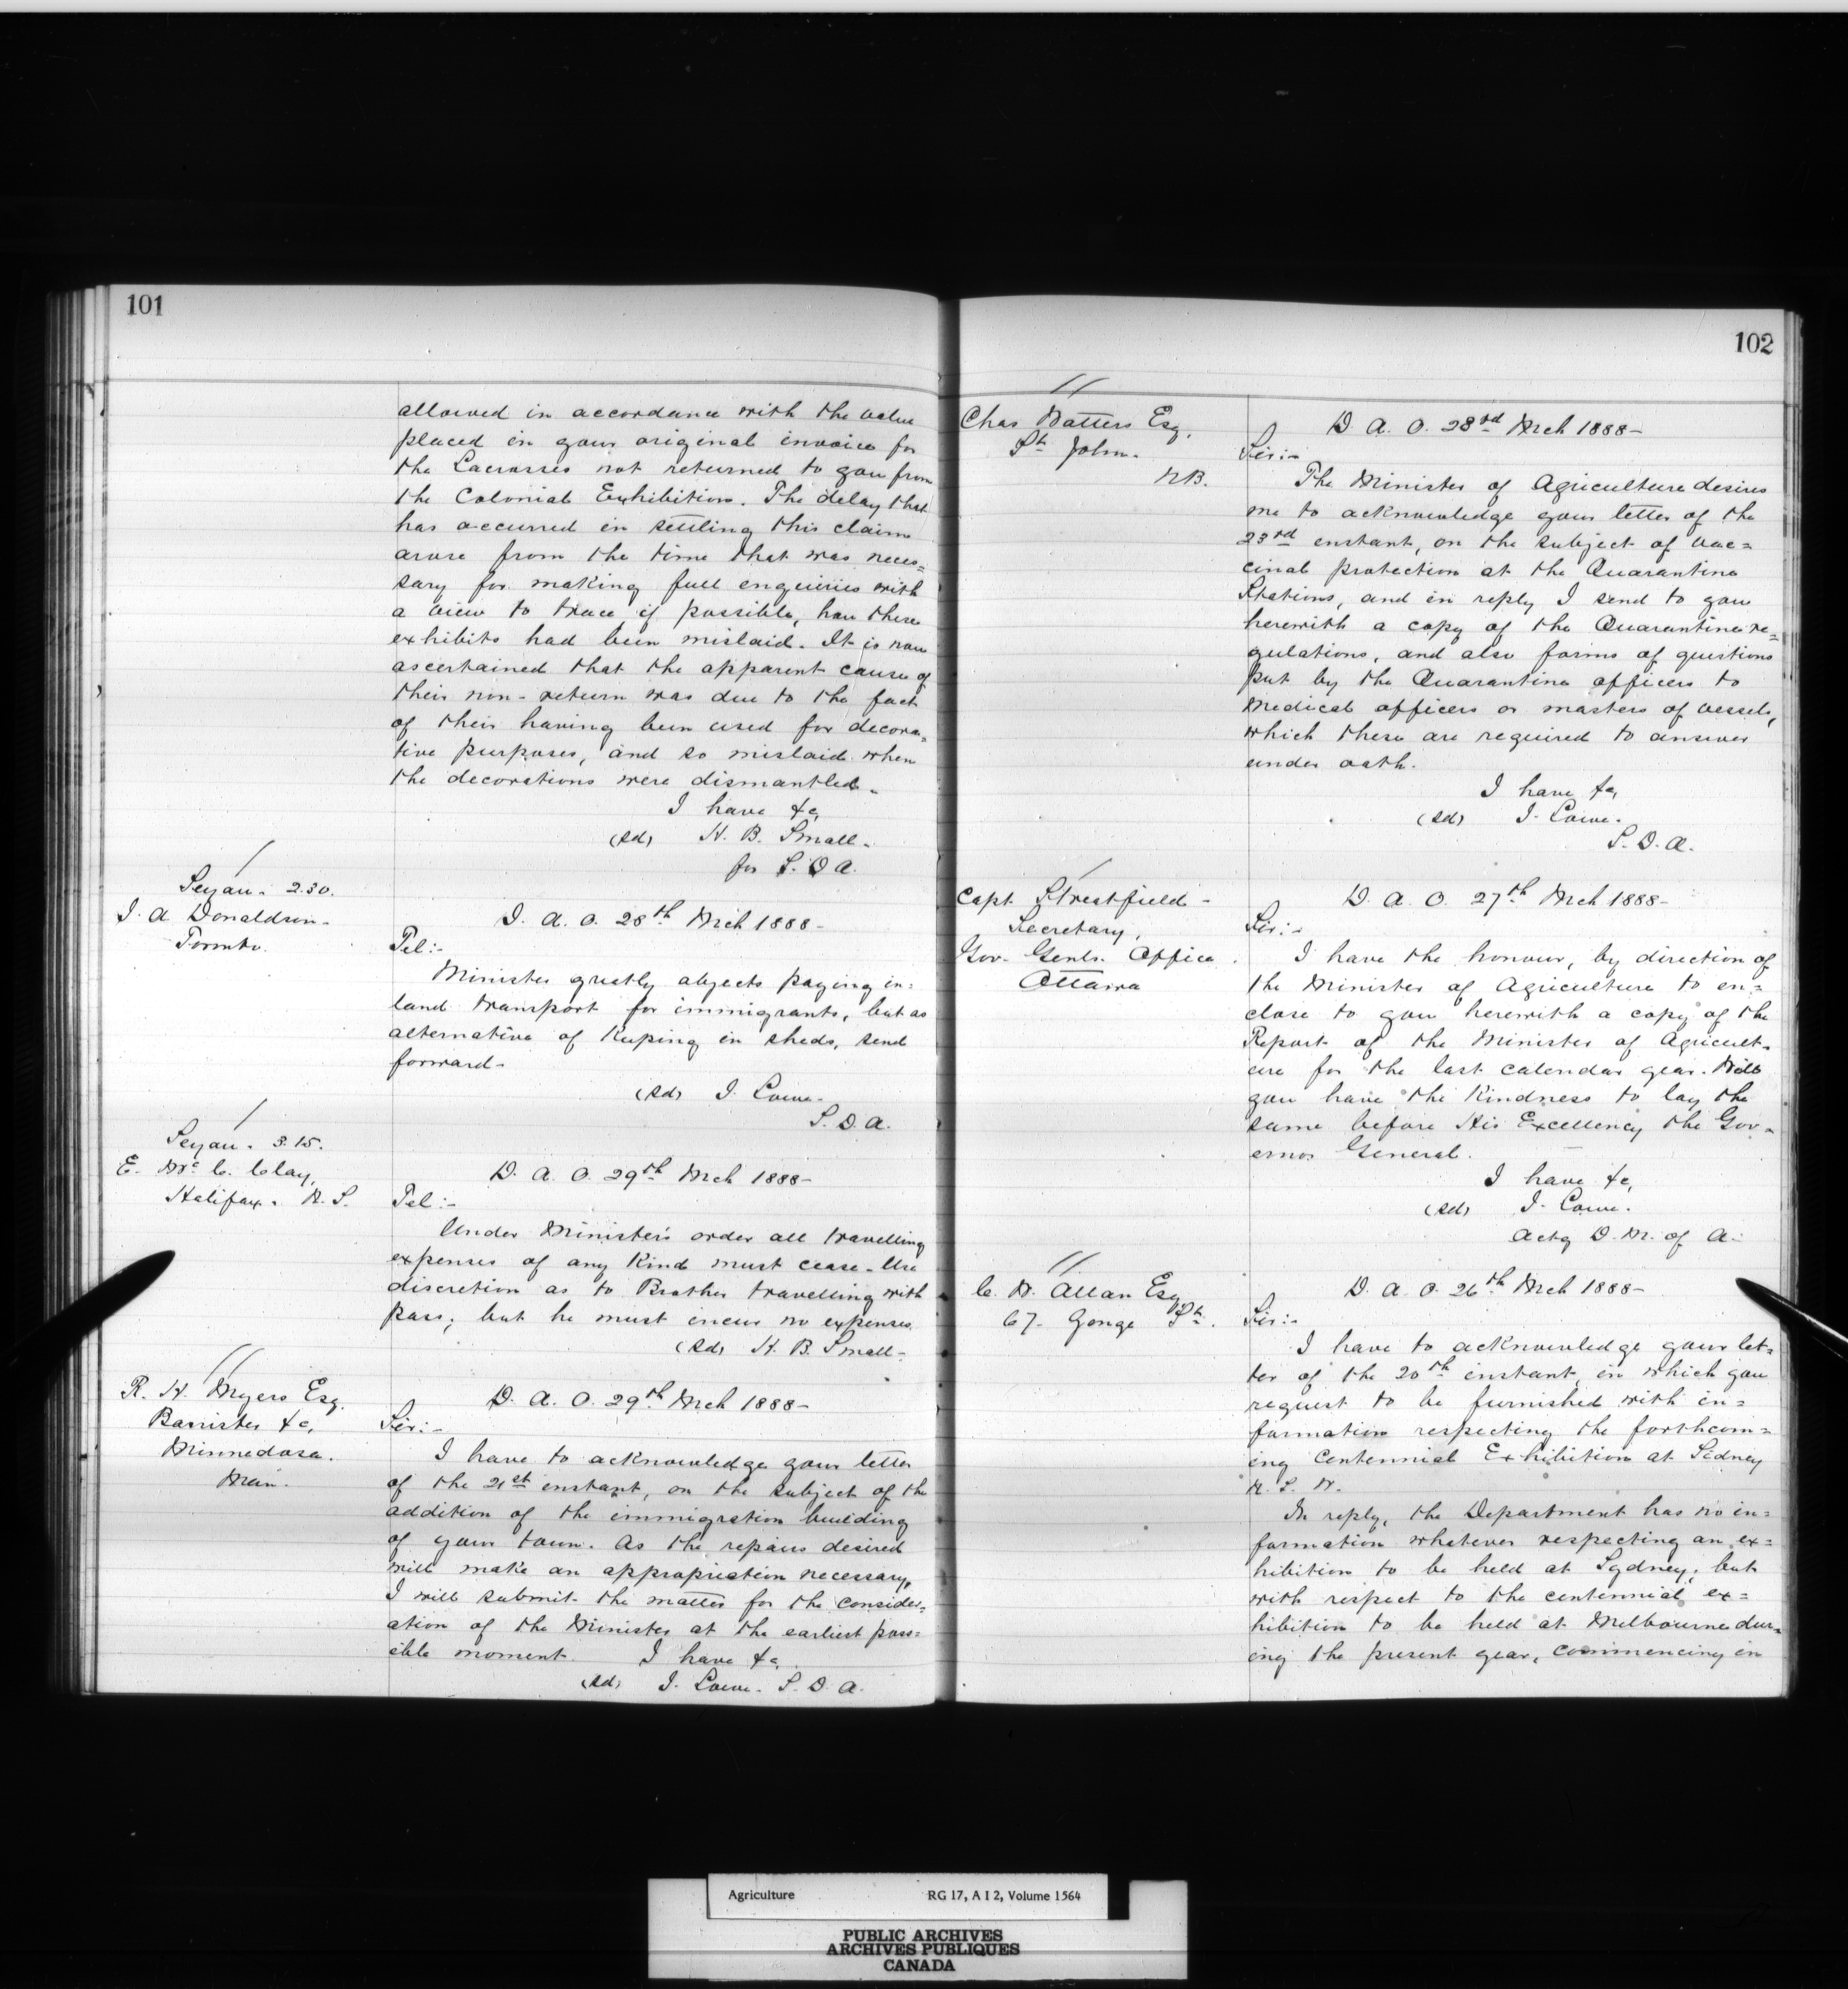 101
allowed in accordance with the value
placed in your original invoice for
the Lacrosses not returned to you from
the Colonial Exhibition. The delay that
has occurred in settling this claim
arose from the time that was neces=
sary for making full enquiries with
a view to trace if possible, how these
exhibits had been mislaid. It is now
ascertained that the apparent cause of
their non-return was due to the fact
of their having been used for decora=
tive purposes, and so mislaid when
the decorations were dismantled.
I have &c,
(sd) H. B. Small.
for S. D. A.
2.30.
J. A. Donaldson-
Toronto.
D. A. O. 28th Mch 1888-
Tel:-
Minister greatly objects paying in=
land transport for immigrants, but as
alternative of Keeping in sheds, send
forward-
(sd) J. Lowe-
S. D. A.
3.15.
E. McC. Clay,
Halifax. N. S.
D. A. O. 29th Mch 1888-
Tel:-
Under Minister's order all travelling
expenses of any Kind must cease. Use
discretion as to Brother travelling with
pass; but he must incur no expenses.
(sd) H. B. Small-
R. H. Myers Esq.
Barrister &c,
Minnedosa.
Man.
D. A. O. 29th Mch 1888-
Sir:-
I have to acknowledge your letter
of the 21st instant, on the subject of the
addition of the immigration building
of your town. As the repairs desired
will make an appropriation necessary,
I will submit the matter for the consider=
ation of the Minister at the earliest poss=
ible moment. I have &c,
(sd) J. Lowe. S. D. A.
102
Chas Watters Esq.
St. John.
NB.
D. A. O. 28rd Mch 1888-
Sir:-
The Minister of Agriculture desires
me to acknowledge your letter of the
23rd instant, on the subject of vac=
cinal protection at the Quarantine
Stations, and in reply I send to you
herewith a copy of the Quarantine re=
gulations, and also forms of questions
put by the Quarantine officers to
Medical officers or masters of vessels,
which these are required to answer
under oath.
I have &c,
(sd) J. Lowe.
S. D. A.
Capt Streatfield-
Secretary,
Gov. Genls. Office.
Ottawa
D. A. O. 27th Mch 1888-
Sir:-
I have the honour, by direction of
the Minister of Agriculture to en=
close to you herewith a copy of the
Report of the Minister of Agricult=
ure for the last calendar year. Will
you have the Kindness to lay the
same before His Excellency the Gov=
ernor General.
I have &c,
(sd) J. Lowe.
Actg D. M. of A.
C. W. Allan Esq
67. Yonge St.
D. A. O. 26th Mch 1888-
Sir:-
I have to acknowledge your let=
ter of the 20th instant, in which you
request to be furnished with in=
formation respecting the forthcom=
ing Centennial Exhibition at Sidney
N. S. W.
In reply, the Department has no in=
formation whatever respecting an ex=
hibition to be held at Sydney; but
with respect to the centennial ex=
hibition to be held at Melbourne dur=
ing the present year, commencing in
Agriculture RG 17, A I 2, Volume 1564
PUBLIC ARCHIVES
ARCHIVES PUBLIQUES
CANADA